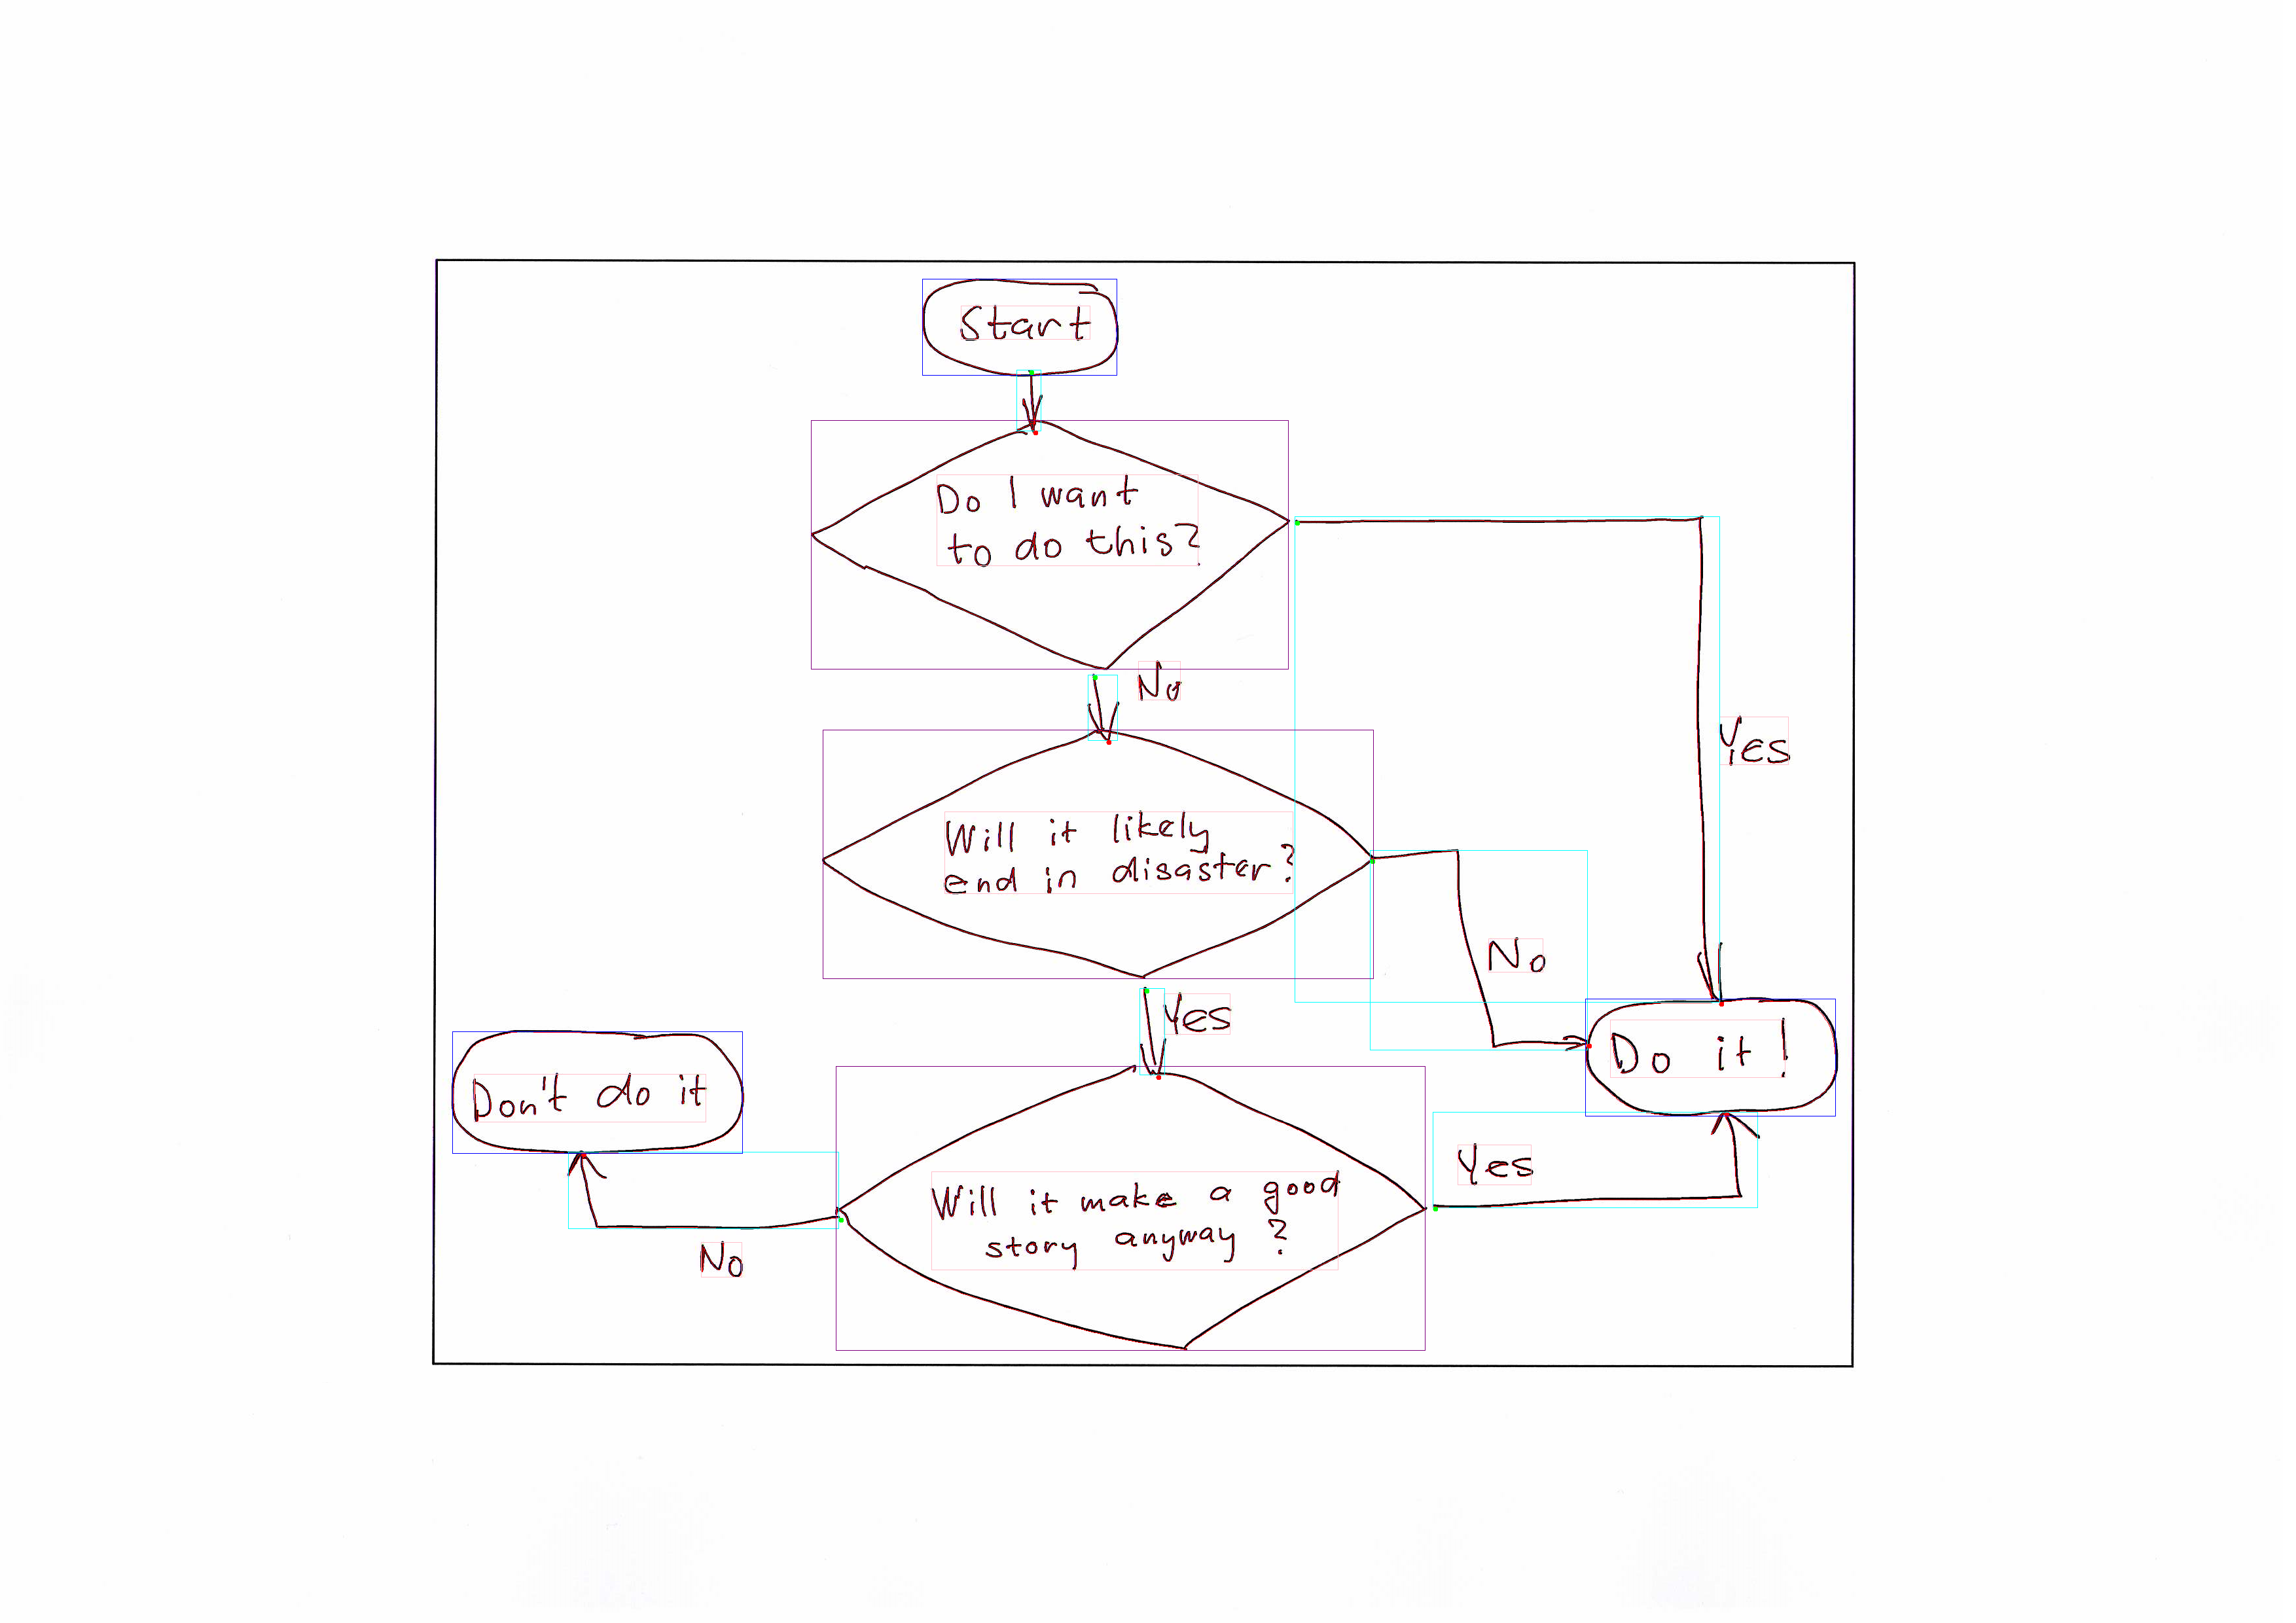 Start
Do I want
to do this?
No
Yes
Will it likely
end in disaster?
No
Yes
Do it!
Don't do it
Yes
Will it make a good
story anyway?
No